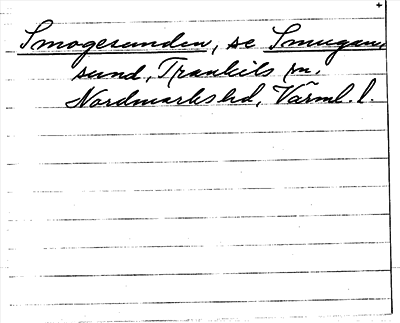 Smogesunden, se Smugan,
sund, Trankils sn.
Nordmarks hd, Värml. l.